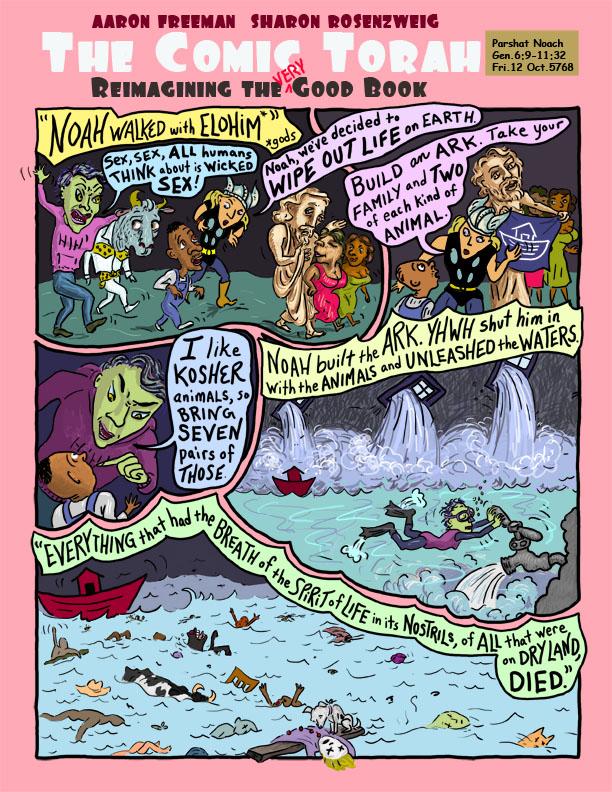 AARON FREEMAN SHARON ROSENZWEIG
THE COMIC TORAH
REIMAGINING THE VERY GOOD BOOK
Parshat Noach
Gen.6:9-11:32
Fri.12 Oct.5768
"NOAH WALKED with ELOHIM*"
*gods
Sex, SEX, ALL humans
THINK about is WICKED
SEX!
Noah, we've decided to
WIPE OUT LIFE on EARTH.
BUILD an ARK. Take your
FAMILY and TWO
of each kind of
ANIMAL.
I like
KOSHER
animals, so
BRING
SEVEN
pairs of
THOSE.
NOAH built the ARK. YHWH shut him in
with the ANIMALS and UNLEASHED the WATERS.
"EVERYTHING that had the BREATH of the SPIRIT of LIFE in its NOSTRILS, of ALL that were
on DRY LAND,
DIED."